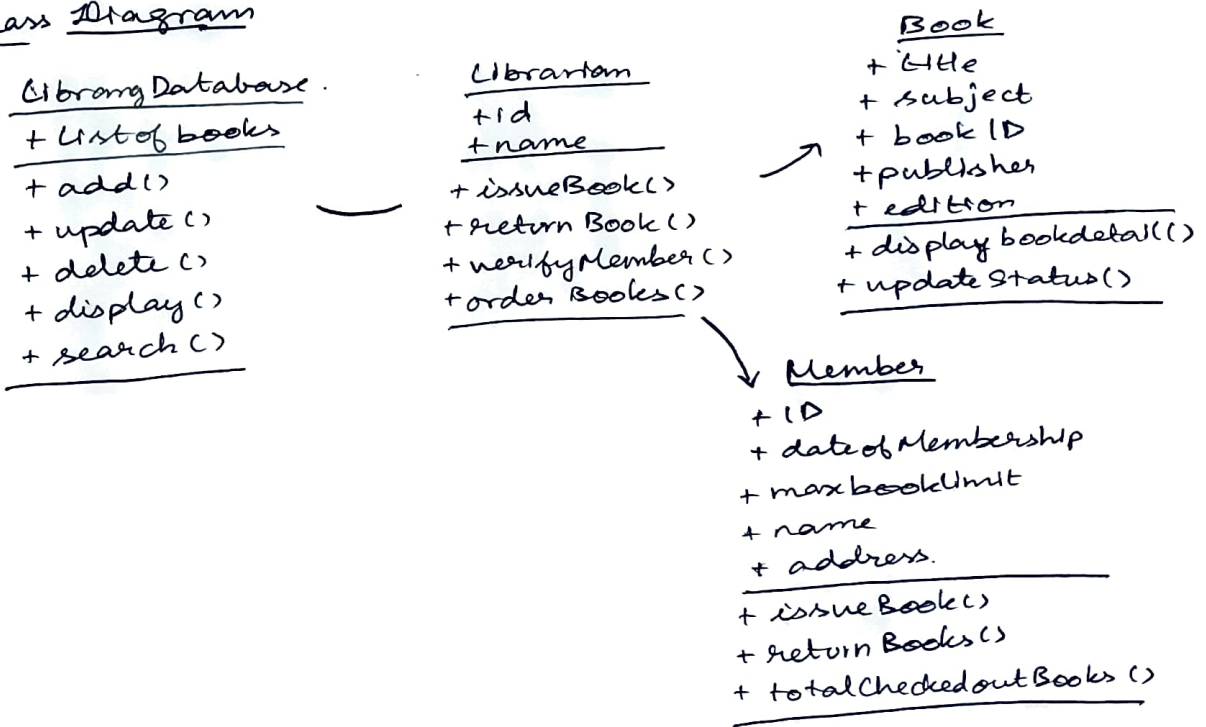 ass Diagram
Library Database.
+ List of books
+ add()
+ update ()
+ delete ()
+ display ()
+ search ()
Librarian
+id
+name
+ issueBook()
+ return Book ()
+ verifyMember ()
+ order Books()
Book
+ title
+ subject
+ book ID
+ publisher
+ edition
+ display bookdetail()
+ update Status()
Member
+ ID
+ date of Membership
+ max book limit
+ name
+ address.
+ issue Book()
+ return Books()
+ total Checked out Books ()